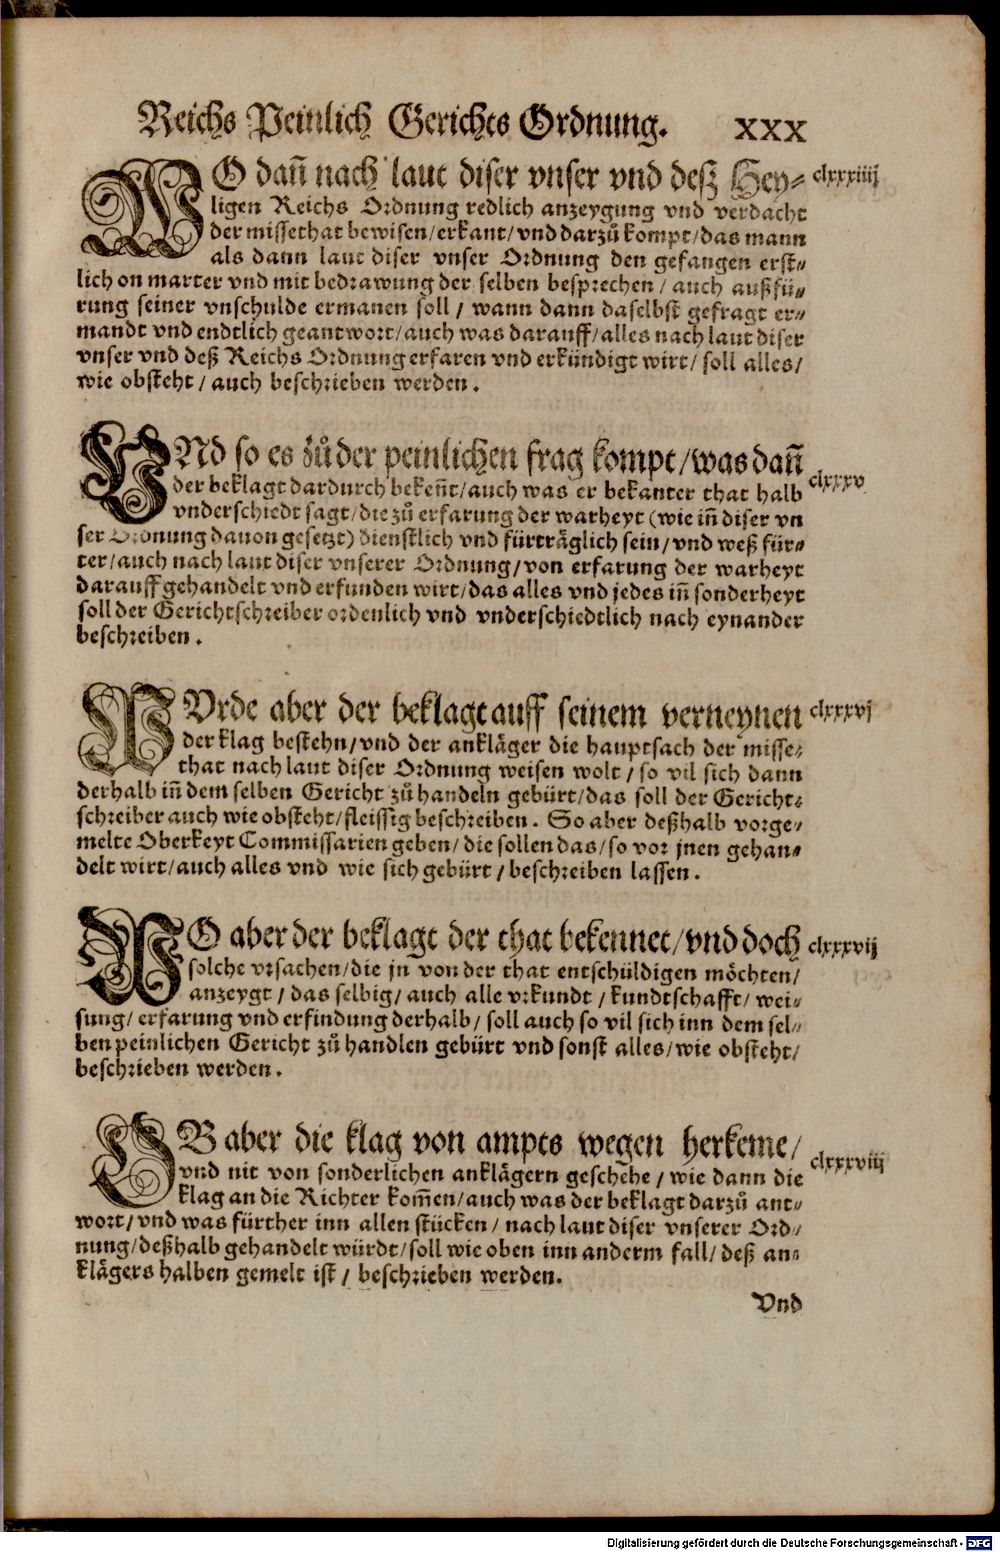 Reichs Peinlich Gerichts Ordnung. XXX
WO dañ nach laut diser vnser vnd deß Hey- clxxxiiij
ligen Reichs Ordnung redlich anzeygung vnd verdacht
der missethat bewisen/erkant/vnd darzů kompt/das mann
als dann laut diser vnser Ordnung den gefangen erst-
lich on marter vnd mit bedrawung der selben besprechen/auch außfü-
rung seiner vnschulde ermanen soll/wann dann daselbst gefragt er-
mandt vnd endtlich geantwort/auch was darauff/alles nach laut diser
vnser vnd deß Reichs Ordnung erfaren vnd erkündigt wirt/soll alles/
wie obsteht/auch beschrieben werden.
VNd so es zů der peinlichen frag kompt/was dañ clxxxv
der beklagt dardurch bekeñt/auch was er bekanter that halb
vnderschiedt sagt/die zů erfarung der warheyt (wie iñ diser vn
ser Ordnung dauon gesetzt) dienstlich vnd fürträglich sein/vnd weß für-
ter/auch nach laut diser vnserer Ordnung/von erfarung der warheyt
darauff gehandelt vnd erfunden wirt/das alles vnd jedes iñ sonderheyt
soll der Gerichtschreiber ordenlich vnd vnderschiedtlich nach eynander
beschreiben.
WVrde aber der beklagt auff seinem verneynen clxxxvj
der klag bestehn/vnd der ankläger die hauptsach der misse-
that nach laut diser Ordnung weisen wolt/so vil sich dann
derhalb iñ dem selben Gericht zů handeln gebürt/das soll der Gericht-
schreiber auch wie obsteht/fleissig beschreiben. So aber deßhalb vorge-
melte Oberkeyt Commissarien geben/die sollen das/so vor jnen gehan-
delt wirt/auch alles vnd wie sich gebürt/beschreiben lassen.
WO aber der beklagt der that bekennet/vnd doch clxxxvij
solche vrsachen/die jn von der that entschüldigen möchten/
anzeygt/das selbig/auch alle vrkundt/kundtschafft/wei-
sung/erfarung vnd erfindung derhalb/soll auch so vil sich inn dem sel-
ben peinlichen Gericht zů handlen gebürt vnd sonst alles/wie obsteht/
beschrieben werden.
OB aber die klag von ampts wegen herkeme/ clxxxviij
vnd nit von sonderlichen anklägern geschehe/wie dann die
klag an die Richter kom̃en/auch was der beklagt darzů ant-
wort/vnd was fürther inn allen stücken/nach laut diser vnserer Ord-
nung/deßhalb gehandelt würdt/soll wie oben inn anderm fall/deß an-
klägers halben gemelt ist/beschrieben werden.
Vnd
Digitalisierung gefördert durch die Deutsche Forschungsgemeinschaft - DFG